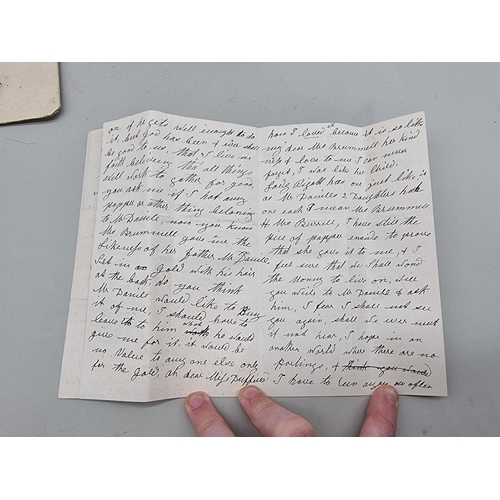 on if he gets well enough to do
it but God has been & ever shall
be good to us, that I live in
faith believing the all things
will work to gather for good
you ask me if I has any
papper or other thing belonging
to Mr Daniel, now you know
Mrs Brummell gave me the
Likenefs of her father Mr Daniel
Set in Gold with his hair
at the back, do you think
Mr Daniel would like to Buy
it of me, I should have to
leave to him what he would
give me for it, it would be
no Value to any one else only
for the Gold, oh dear Mifs
how I loved it because it is so like
my dear Mrs Brummell her kind
nefs & love to me I can never
forget, I was like her Child.
Lady has one just like it
as Mr Daniels 2 Daughters had
one each I mean Mrs Brummell
& Mrs Burrell, I have still the
pice of papper inside to prove
that she gave it to me, & I
feel sure that we shall want
the money to live on, will
you write to Mr Daniel & ask
him, I fear I shall not see
you again, shall we ever meet
if not hear, I hope in an
another World where there are no
Partings, & think you should
I have to run away so often